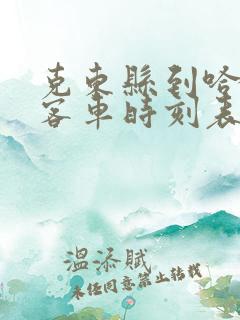 克東縣到哈
客車時刻表
溫添賦
未经同意禁止转载